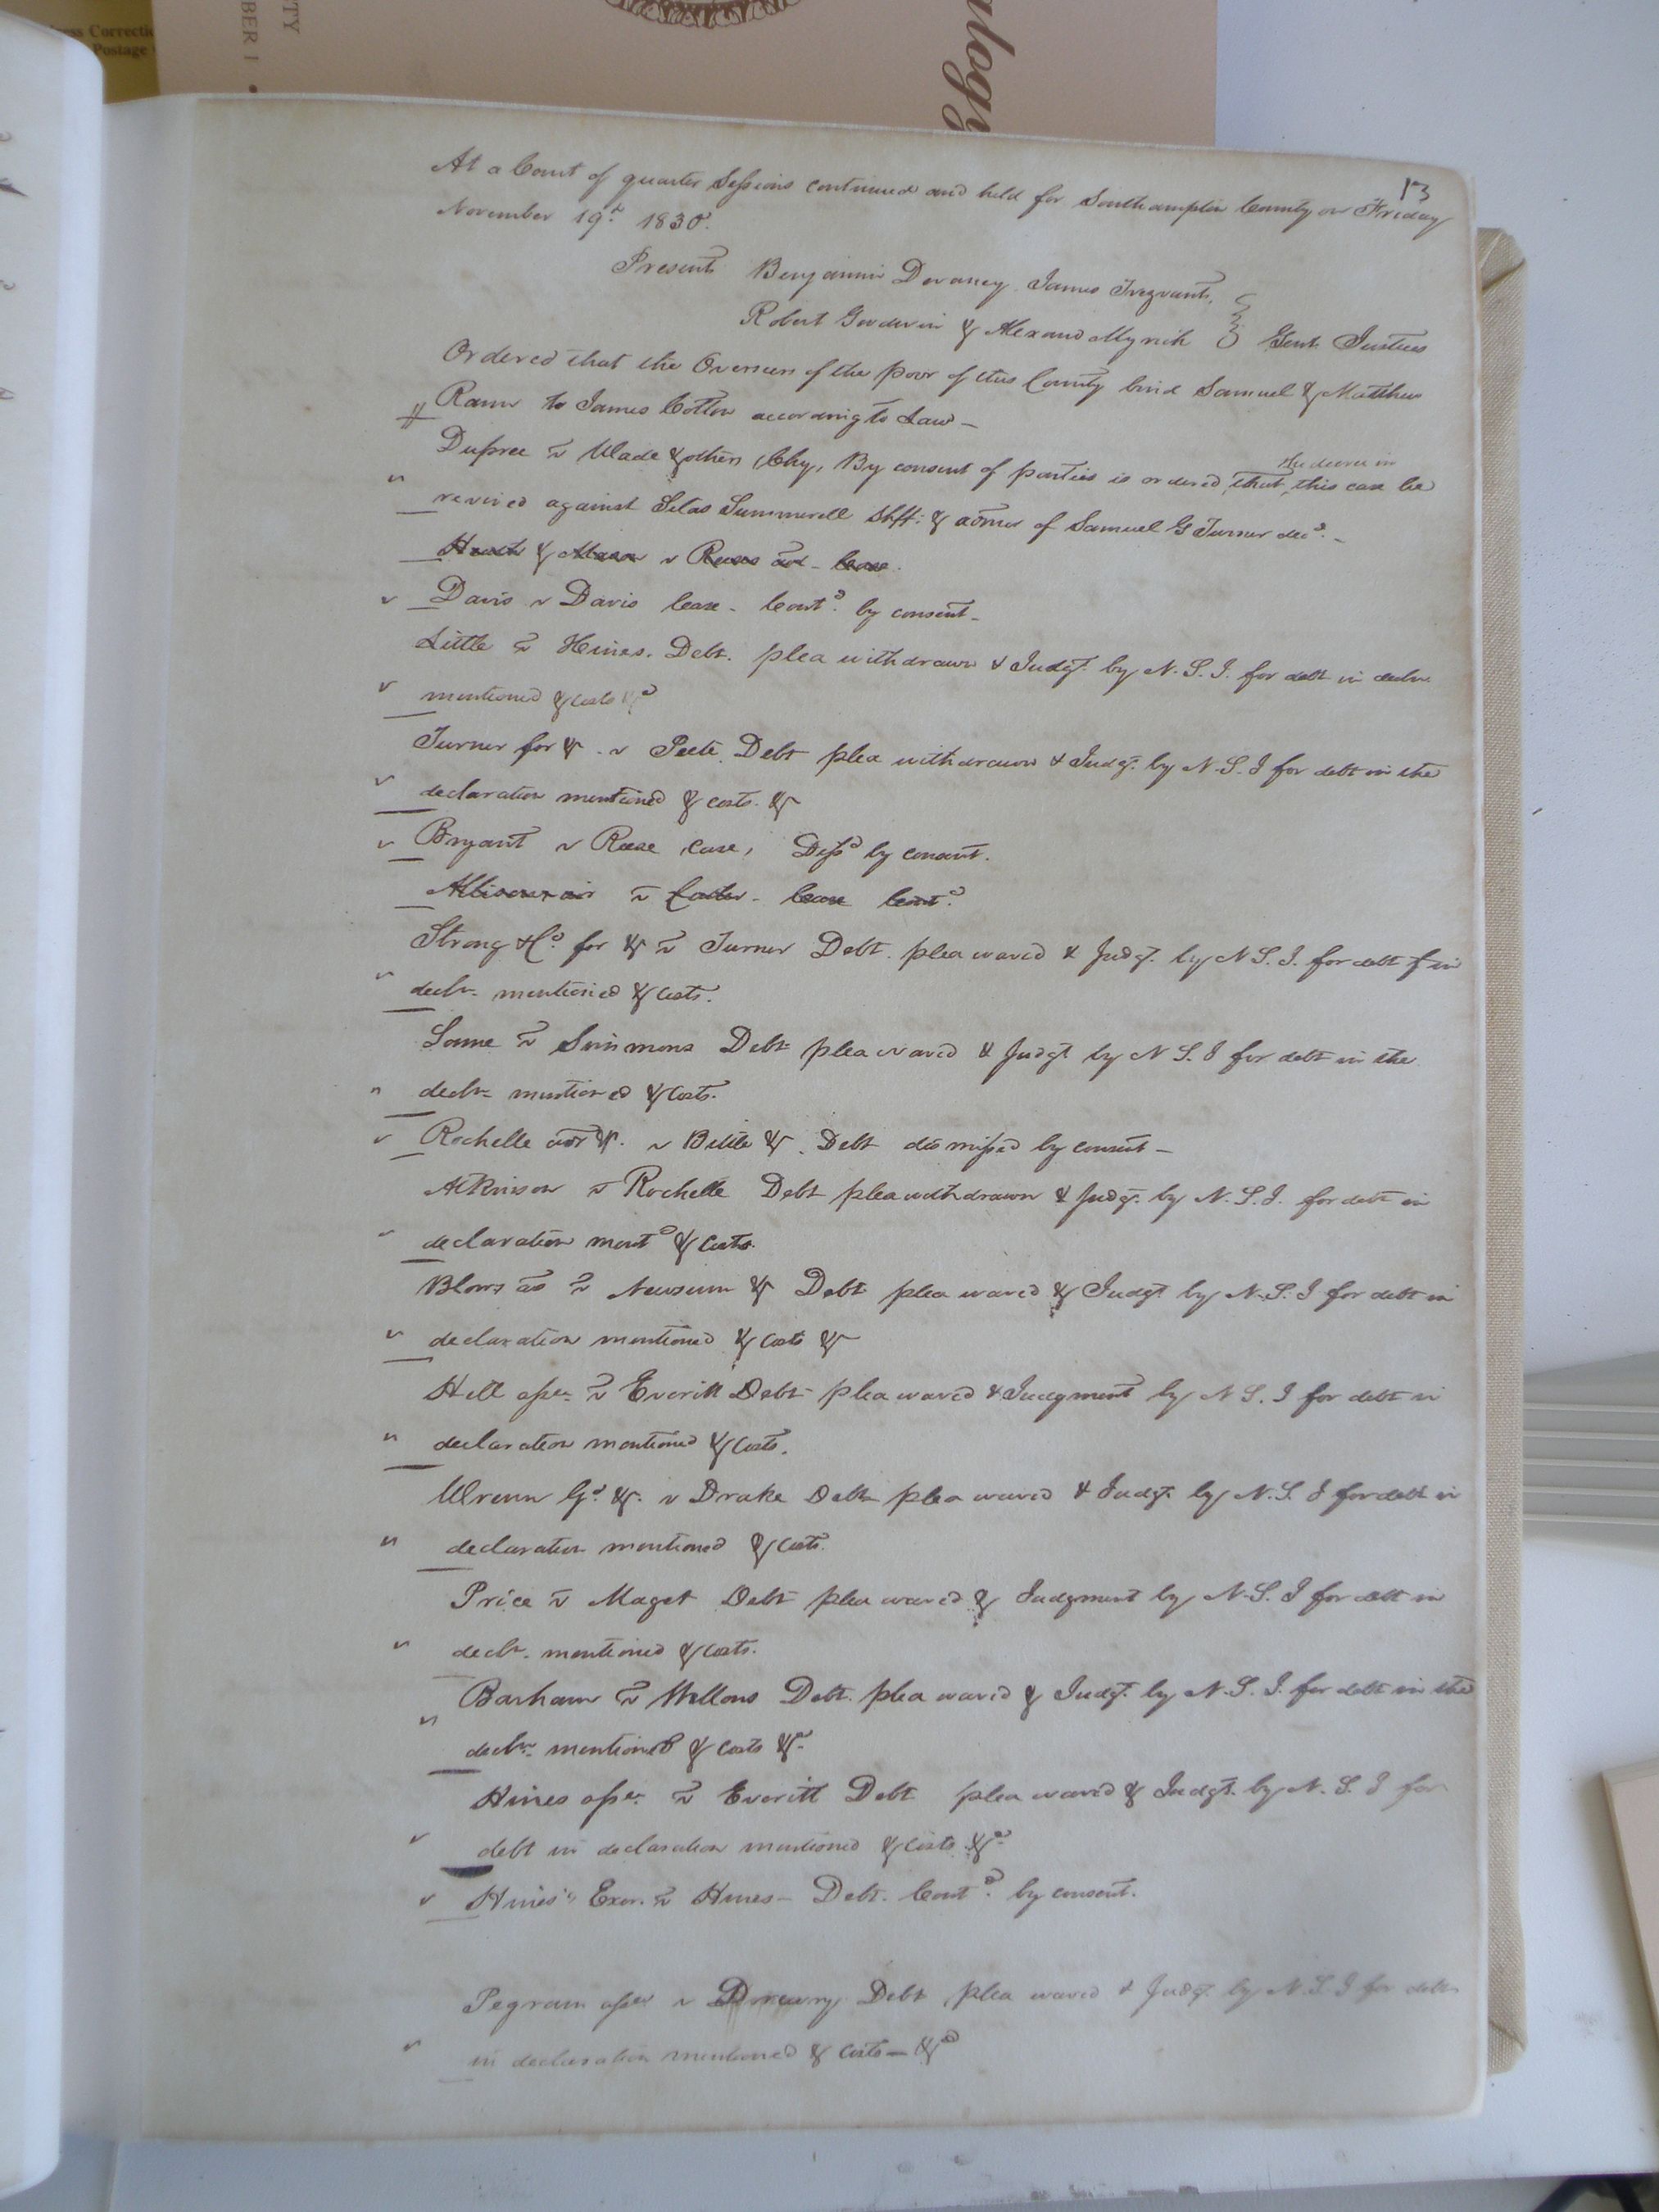 ss Correctio
Postage
TY
BER 1 •
alogy
13
At a Court of quarter Sessions continued and held for Southampton County on Friday
November 19th 1830.
Present Benjamin Devaney James Trezvant,
Robert Goodwin & Alexand Myrick Gent. Justices
Ordered that the Overseers of the poor of this County bind Samuel & Matthew
Rann to James Cotton according to Law –
Dupree v Wade & others, Chy, By consent of parties is ordered that the decree in this case be
revived against Silas Summerell Shff: & admor of Samuel G Turner decd. –
Heath & Mason v Reese Case.
Davis v Davis Case – Contd. by consent –
Little v Hines. Debt. plea withdrawn & Judgt. by N. S. I. for debt in decln
mentioned & costs &c
Turner for &c. v Peete Debt plea withdrawn & Judgt. by N. S. I for debt in the
declaration mentioned & costs. &c
Bryant v Reese, Case, Dissd by consent.
v Case Contd.
Strong & Co. for &c v Turner Debt. plea waved & Judgt. by N S. I. for debt in
decln mentioned & costs.
Same v Simmons Debt plea waved & Judgt by N S. I for debt in the
decln mentioned & costs.
Rochelle &c. v Bittle &c. Debt dismissed by consent –
Atkinson v Rochelle Debt plea withdrawn & Judgt. by N. S. I. for debt in
declaration mentd & Costs.
Blow as v Newsum &c Debt plea waved & Judgt by N. S. I for debt in
declaration mentioned & costs &c
Hill assee v Everitt Debt plea waved & Judgment by N S. I for debt in
declaration mentioned & Costs.
Wrenn Gd. &c. v Drake Debt plea waved & Judgt. by N. S. I for debt in
declaration mentioned & costs.
Price v Maget Debt plea waved & Judgment by N. S. I for debt in
decln. mentioned & costs.
Barham v Wellons Debt. plea waved & Judgt. by N. S. I. for debt in the
decln mentioned & costs &c
Hines assee. v Everitt Debt plea waved & Judgt. by N. S. I for
debt in declaration mentioned & costs &c
Hines's Exor. v Hines – Debt. Contd. by consent.
Pegram assee v Drewry Debt plea waved & Judgt. by N. S I for debt
in declaration mentioned & costs – &c